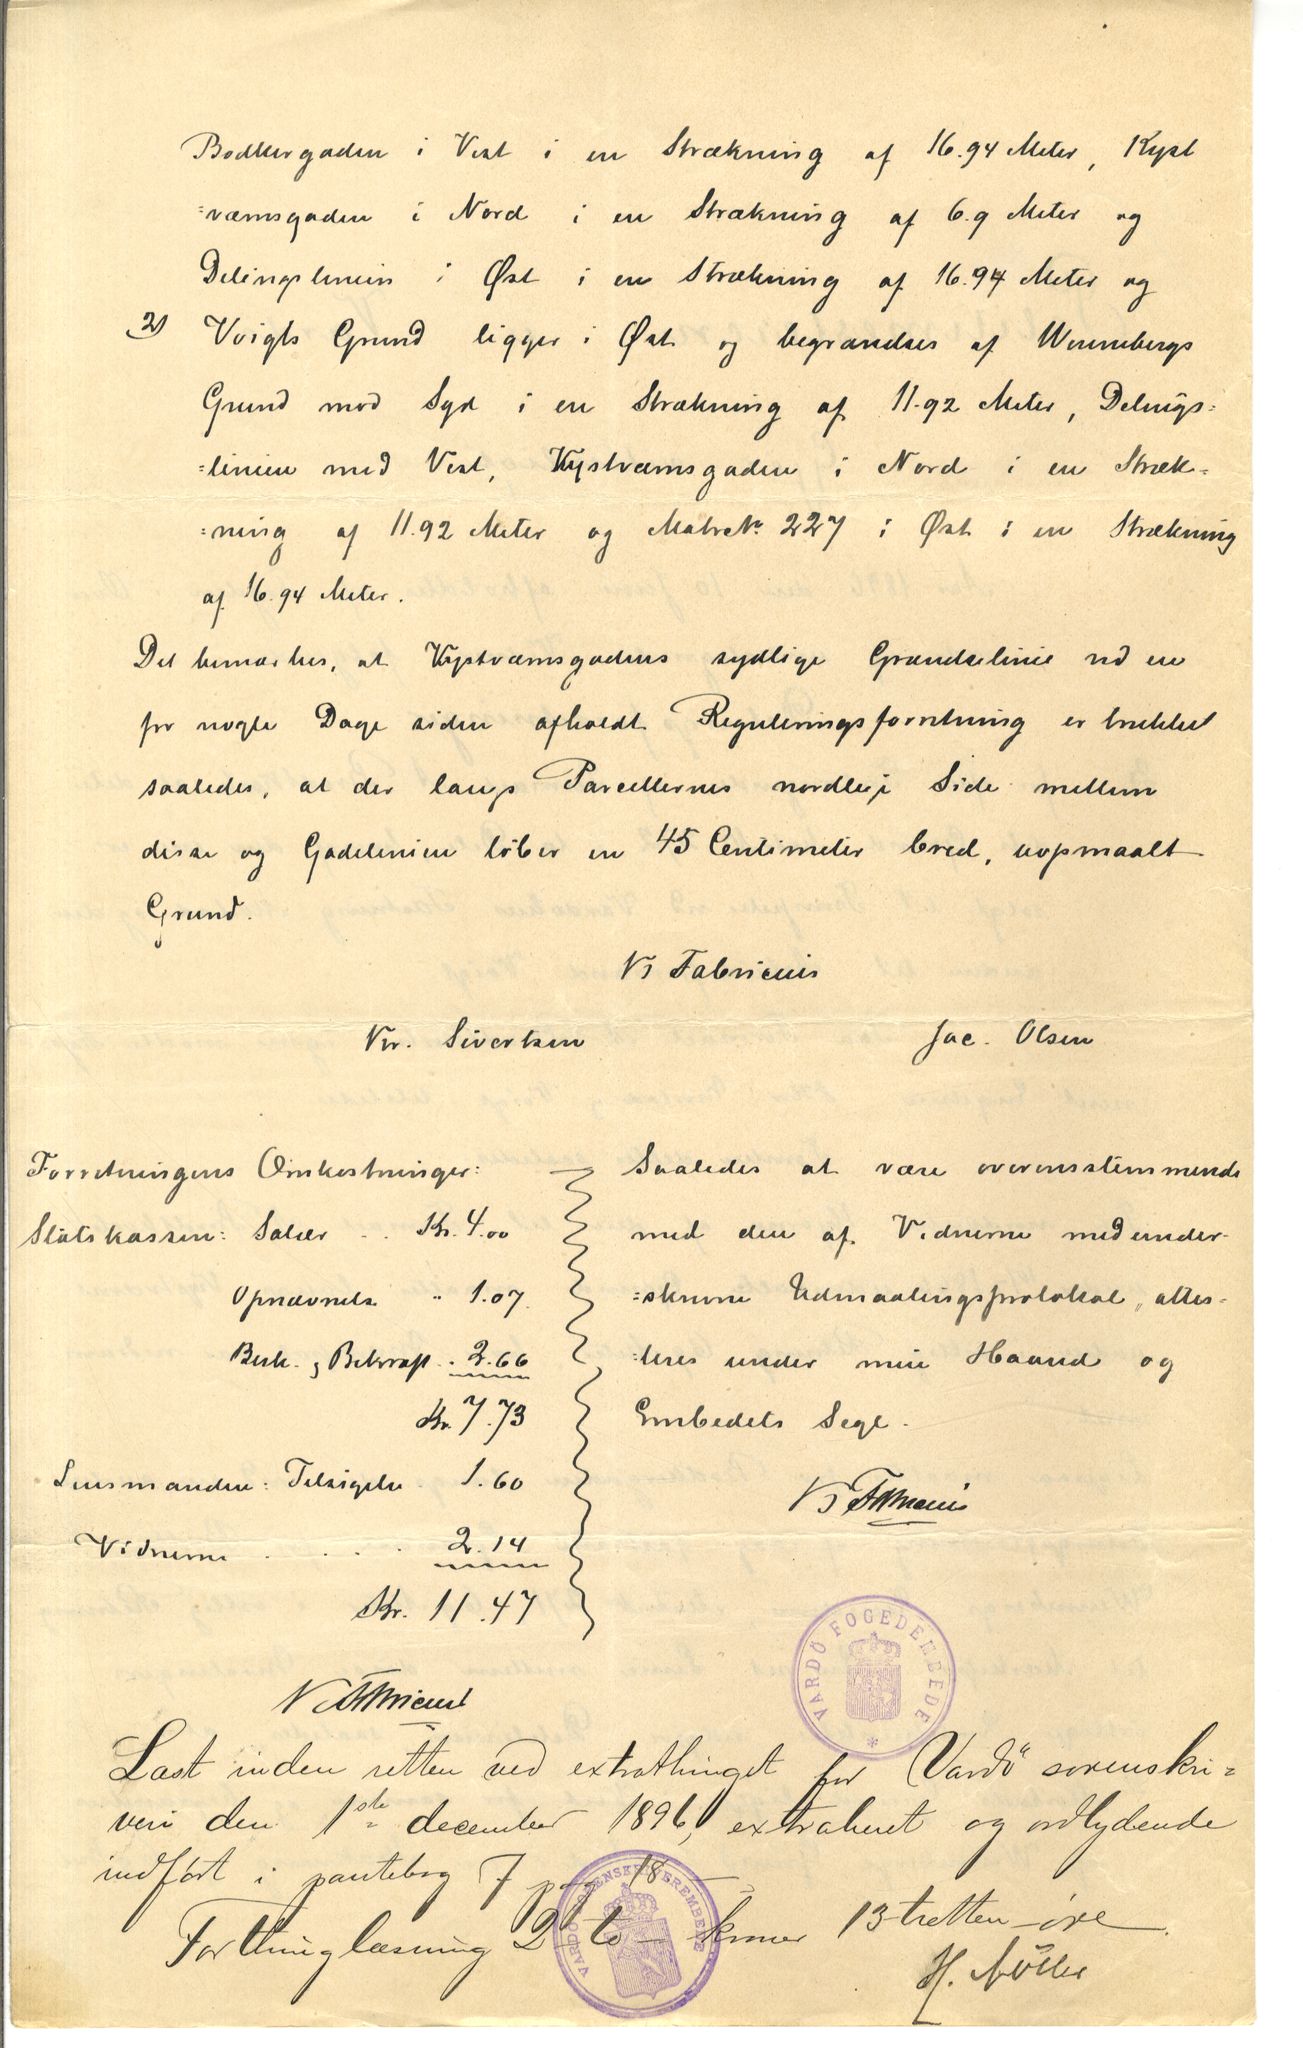 Bødkergaden i Vest i en Strækning af 16.94 Meter, Kyst
=værnsgaden i Nord i en Strækning af 6.9 Meter og
Delingslinien i Øst i en Strækning af 16.94 Meter og
2) Voigts Grund ligger i Øst og begrændses af Wennebergs
Grund mod Syd i en Strækning af 11.92 Meter, Delings=
=linien mod Vest, Kystværnsgaden i Nord i en Stræk=
=ning af 11.92 Meter og Matr. № 227 i Øst i en Strækning
af 16.94 Meter.
Det bemærkes, at Kystværnsgadens sydlige Grændselinie ved en
for nogle Dage siden afholdt Reguleringsforretning er trukket
saaledes, at der langs Parcellernes nordlige Side mellem
disse og Gadelinien løber en 45 Centimeter bred, uopmaalt
Grund.
Vs Fabricius
Kr. Sivertsen
Jac. Olsen
Forretningens Omkostninger:
Statskassen: Salær . . Kr. 4.00
Opnævnelse " 1.07
Besk. og Bekræft. . 2.66
Kr. 7.73
Lensmanden: Tilsigelse 1.60
Vidnerne . . . . 2.14
Kr. 11.47
Saaledes at være overensstemmende
med den af Vidnerne medunder=
=skrevne Udmaalingsprotokol, attes=
=teres under min Haand og
Embedets Segl.
Vs Fabricius
VARDÖ FOGEDEMBEDE
Vs Fabricius
Læst inden retten ved extrathinget for Vardö sorenskri=
veri den 1ste december 1896, extraheret og ordlydende
indført i pantebog 7 pag 18
For thinglæsning 2 - to - kroner 13 - tretten - øre.
VARDÖ SORENSKRIVEREMBEDE
H. Möller